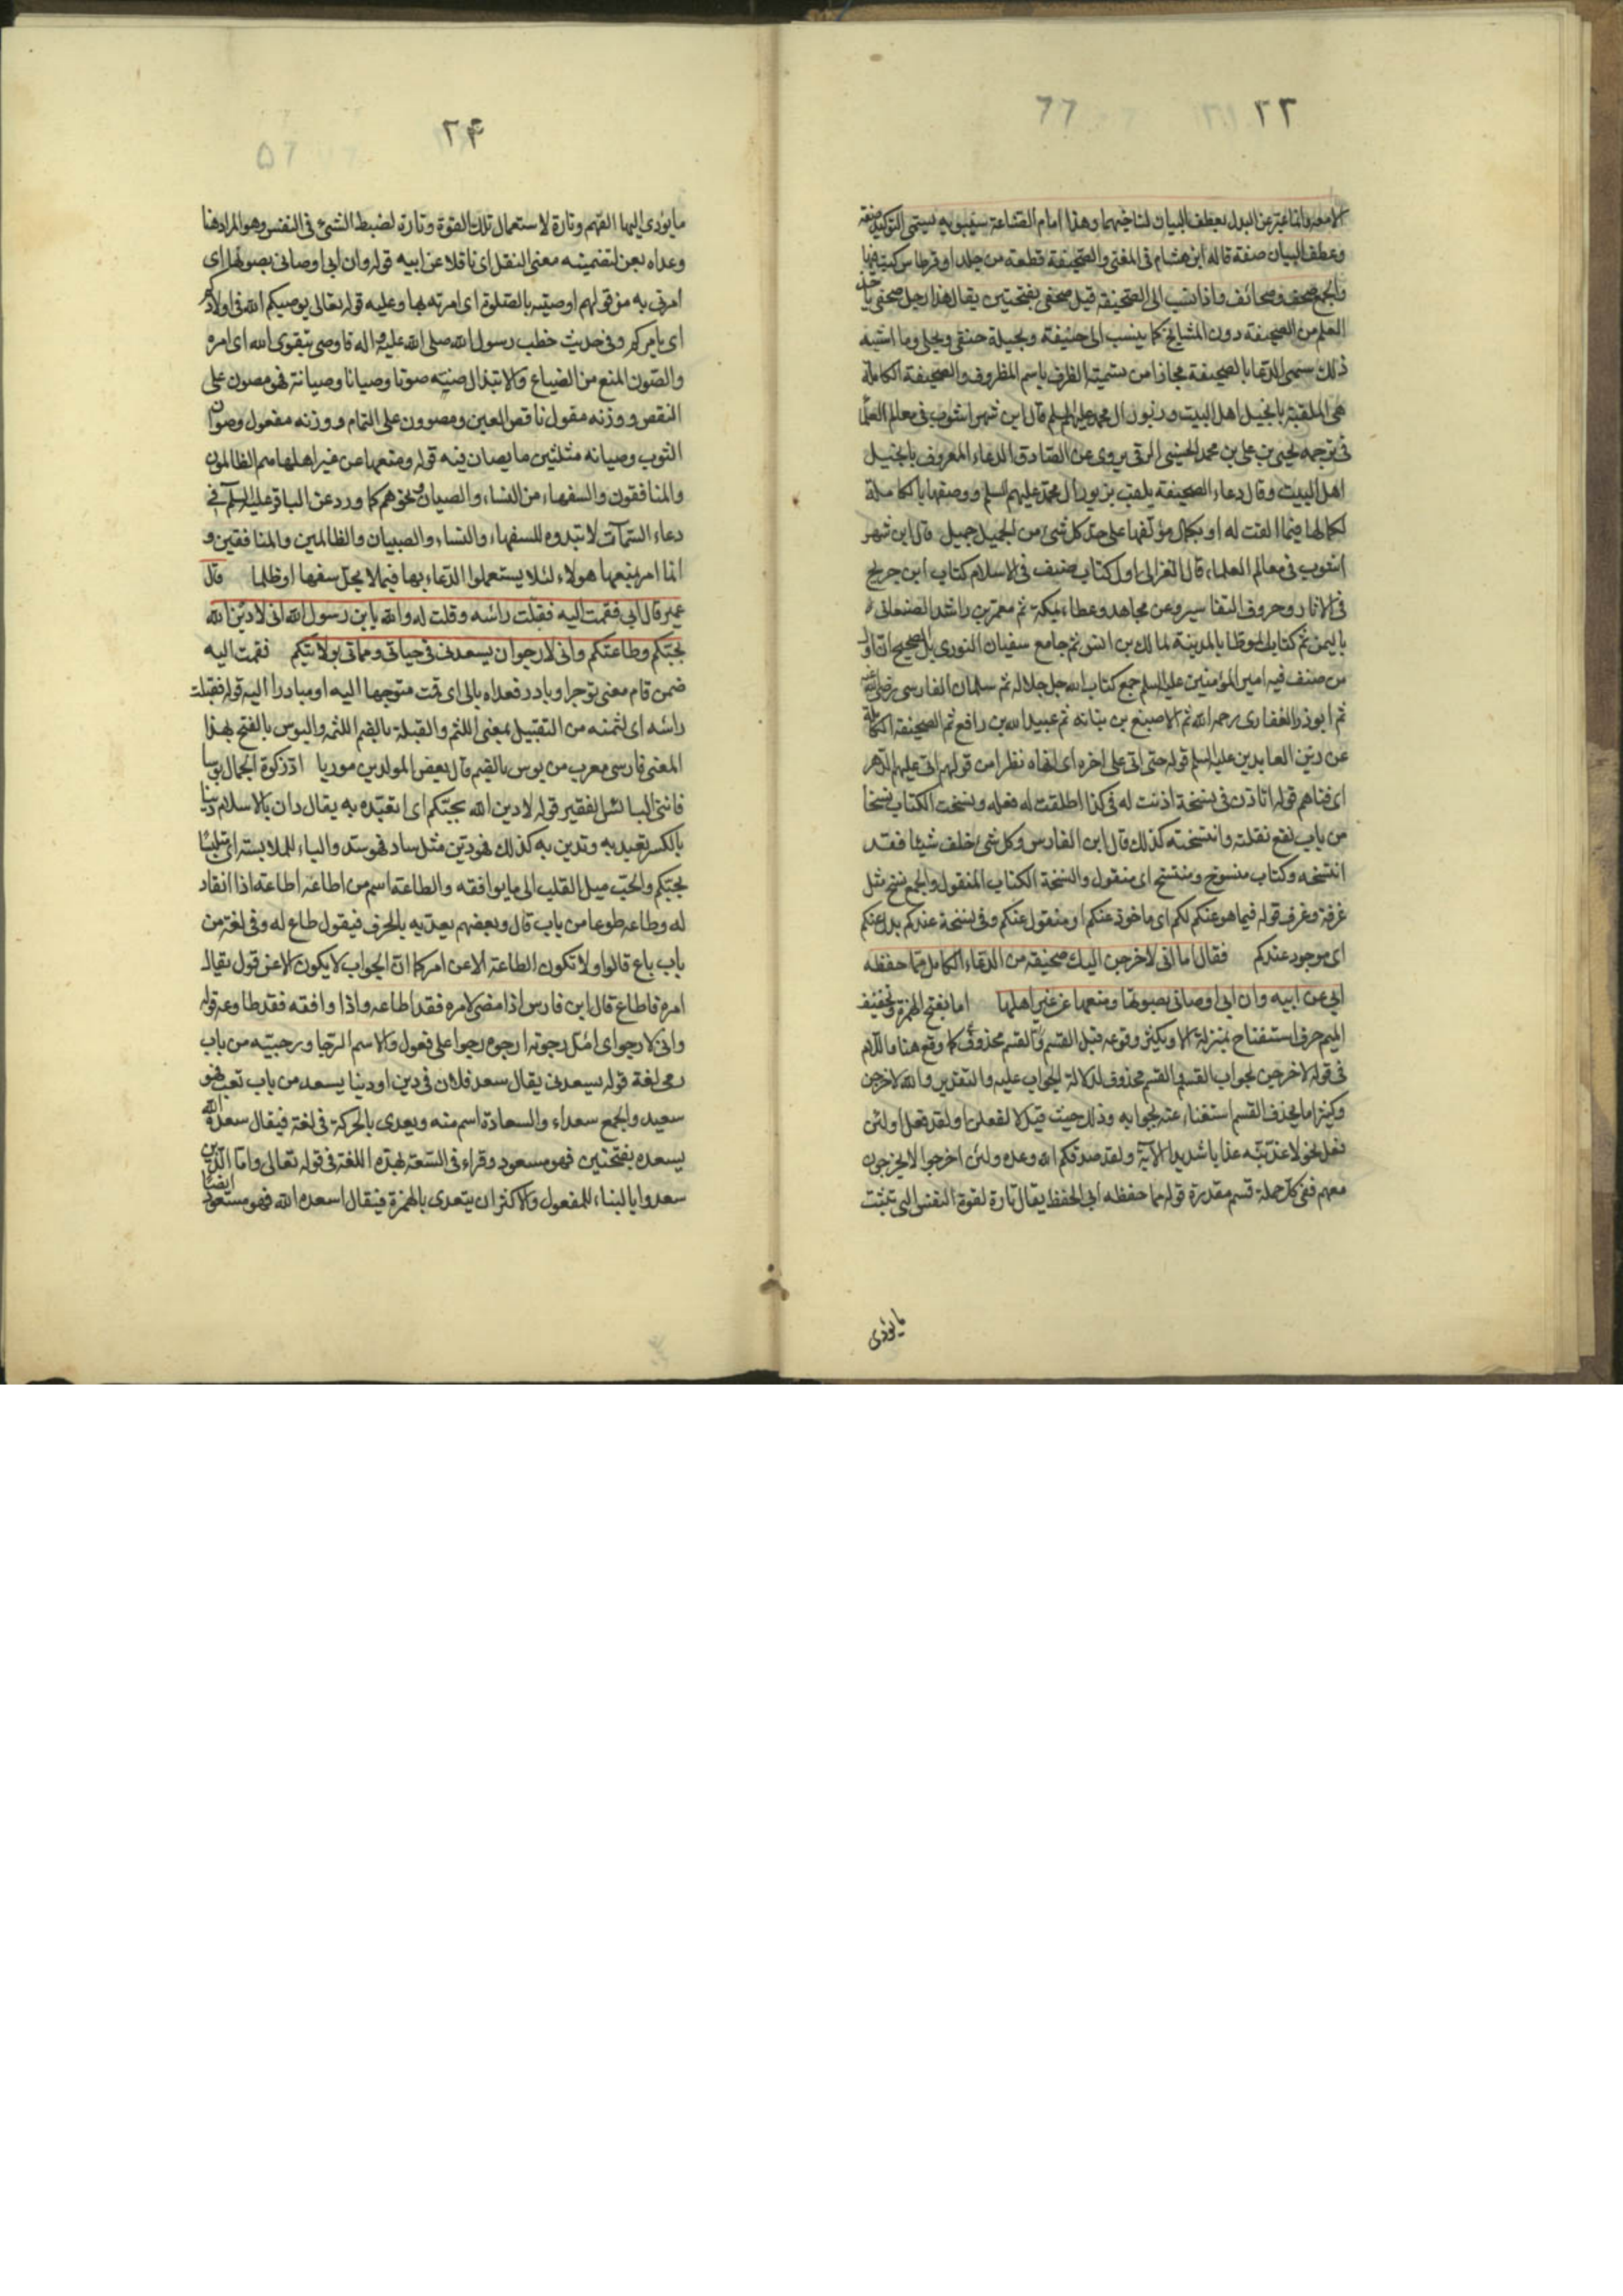 ٢٣
الامعه وانما عبر عن البدل بعطف البيان لتاخيهما وهذا امام الصناعة سيبويه يسمى التوكيد صفة
وعطف البيان صفة قاله ابن هشام في المغني والصحيفة قطعة من جلد او قرطاس كتب فيها
والجمع صحف وصحائف واذا نسب الى الصحيفة قيل صحفي بفتحتين يقال هذا رجل صحفي ياخذ
العلم من الصحيفة دون المشايخ كما ينسب الى حنيفة وبجيلة حنفي وبجلي وما اشبه
ذلك سمي الدعا بالصحيفة مجازا من تسمية الظرف باسم المظروف والصحيفة الكاملة
هي الملقبة بانجيل اهل البيت وزبور ال محمد عليهم السلم قال ابن شهر اشوب في معالم العلما
في ترجمه يحيى بن علي بن محمد الحسيني الرقي يروى عن الصادق الدعاء المعروف بانجيل
اهل البيت وقال دعاء الصحيفة يلقب بزبور ال محمد عليهم السلم ووصفها بالكاملة
لكمالها فيما الفت له او بكمال مؤلفها على حد كل شئ من الجميل جميل قال ابن شهر
اشوب في معالم العلماء قال الغزالي اول كتاب صنف في الاسلام كتاب ابن جريح
في الاثار وحروف التفاسير وعن مجاهد وعطاء بمكة ثم معمر بن راشد الصنعاني
باليمن ثم كتاب الموطا بالمدينة لمالك بن انس ثم جامع سفيان الثوري بل الصحيح ان اول
من صنف فيه امير المؤمنين عليه السلم جمع كتاب الله جل جلاله ثم سلمان الفارسي رضي الله عنه
ثم ابوذر الغفاري رحمه الله ثم الاصبغ بن نباته ثم عبيد الله بن رافع ثم الصحيفة الكاملة
عن زين العابدين عليه السلم قوله حتى اتى على اخره اى انهاه نظرا من قولهم اتى عليهم الدهر
اى فناهم قوله اتاذن في نسخة اذنت له في كذا اطلقت له فعله ونسخت الكتاب نسخا
من باب نفع نقلته وانتسخته كذلك قال ابن الفارس وكل شئ خلف شيئا فقد
انتسخه وكتاب منسوخ ومنتسخ اى منقول والنسخة الكتاب المنقول والجمع نسخ مثل
غرفة وغرف قوله فيما هو عنكم لكم اى ماخوذ عنكم او منقول عنكم وفي نسخة عندكم بدل عنكم
اى موجود عندكم فقال اما انى لاخرجن اليك صحيفه من الدعاء الكامل مما حفظه
ابي عن ابيه وان ابي اوصاني بصونها ومنعها عن غير اهلها اما بفتح الهمزة وتخفيف
الميم حرف استفتاح بمنزلة الا ويكثر وقوعه قبل القسم والقسم محذوف كما وقع هنا فاللام
في قوله لاخرجن لجواب القسم والقسم محذوف لدلالة الجواب عليه والتقدير والله لاخرجن
وكثيرا ما يحذف القسم استغناء عنه بجوابه وذلك حيث قيل لافعلن او لقد فعل او لئن
فعل نحو لاعذبنه عذابا شديدا الاية ولقد صدقكم الله وعده ولئن اخرجوا لا يخرجون
معهم ففي كل جملة قسم مقدرة قوله مما حفظه ابي الحفظ يقال تارة لقوة النفس التي تثبت
مايؤدى
٢۴
ما يؤدى اليها الفهم وتارة لاستعمال تلك القوة وتارة لضبط الشئ في النفس وهو المراد هنا
وعداه بعن لتضمينه معنى النقل اى ناقلا عن ابيه قوله وان ابي اوصاني بصونها اى
امرني به من قولهم اوصيته بالصلوة اى امرته بها وعليه قوله تعالى يوصيكم الله في اولادكم
اى يامركم وفي حديث خطب رسول الله صلى الله عليه واله فاوصى بتقوى الله اى امره
والصون المنع من الضياع والابتذال صنته صونا وصيانا وصيانة فهو مصون على
النقص ووزنه مفول ناقص العين ومصوون على التمام ووزنه مفعول وصوان
الثوب وصيانه مثلثين ما يصان فيه قوله ومنعها عن غير اهلها هم الظالمون
والمنافقون والسفهاء من النساء والصبيان ونحوهم كما ورد عن الباقر عليه السلم في
دعاء السمات لا تبدوه للسفهاء والنساء والصبيان والظالمين والمنافقين و
انما امر بمنعها هولاء لئلا يستعملوا الدعاء بها فيما لا يحل سفها او ظلما قال
عمير قال ابي فقمت اليه فقبلت رأسه وقلت له والله يا بن رسول الله انى لادين الله
بحبكم وطاعتكم وانى لارجوا ان يسعدنى في حياتي ومماتي بولايتكم فقمت اليه
ضمن قام معنى توجرا وبادر فعداه بالى اى قمت متوجها اليه او مبادرا اليه قوله فقبلت
رأسه اى لثمته من التقبيل بمعنى اللثم والقبلة بالضم اللثمه والبوس بالفتح بهذا
المعنى فارسى معرب من بوس بالضم قال بعض المولدين موريا ادّ زكوة الجمال بوسا
فانني البائس الفقير قوله لادين الله بحبكم اى اتعبده به يقال دان بالاسلام دينا
بالكسر تعبد به وتدين به كذلك فهو دين مثل ساد فهو سيد والباء للملابسته اى متلبسا
بحبكم والحب ميل القلب الى ما يوافقه والطاعة اسم من اطاعه اطاعة اذا انقاد
له وطاعه طوعا من باب قال وبعضهم يعديه بالحرف فيقول طاع له وفي لغة من
باب باع قالوا ولا تكون الطاعة الا عن امر كما ان الجواب لا يكون الا عن قول يقال
امره فاطاع قال ابن فارس اذا مضى لامره فقد اطاعه واذا وافقه فقد طاوعه قوله
وانى لارجوا اى امل رجوته ارجوه رجوا على فعول والاسم الرجا ورجيته من باب
رمى لغة قوله يسعدنى يقال سعد فلان في دين او دنيا يسعد من باب تعب فهو
سعيد والجمع سعداء والسعادة اسم منه ويعدى بالحركة في لغة فيقال سعده الله
يسعده بفتحتين فهو مسعود وقراء في السبعة بهذه اللغة في قوله تعالى واما الذين
سعدوا بالبناء للمفعول والاكثر ان يتعدى بالهمزة فيقال اسعده الله فهو مسعود ايضا